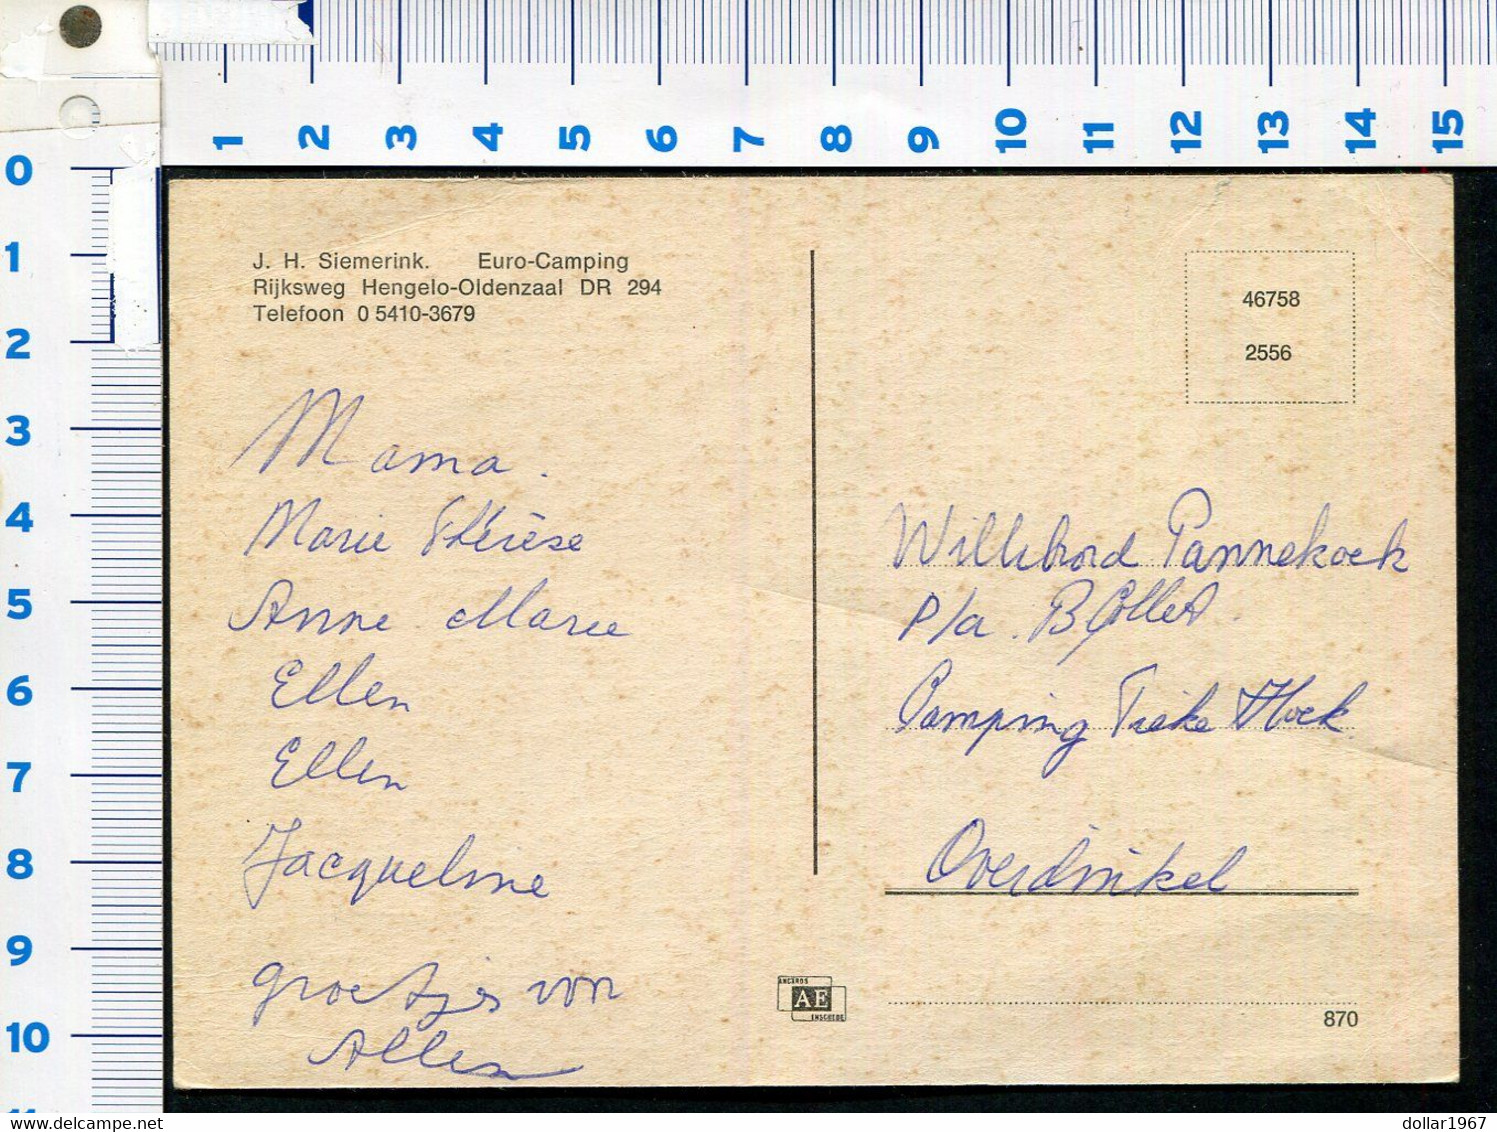 1 2 3 4 5 6 7 8 9 10 11 12 13 14 15
0
1
2
3
4
5
6
7
8
9
10
J. H. Siemerink. Euro-Camping
Rijksweg Hengelo-Oldenzaal DR 294
Telefoon 0 5410-3679
Mama.
Marie Thérèse
Anne Marie
Ellen
Ellen
Jacqueline
groetjes von
Allen
46758
2556
Willibrord Pannekoek
p/a. B Collet.
Camping Tieke Hoek
Overdinkel
ANCARDS
AE
ENSCHEDE
870
www.delcampe.net
dollar1967